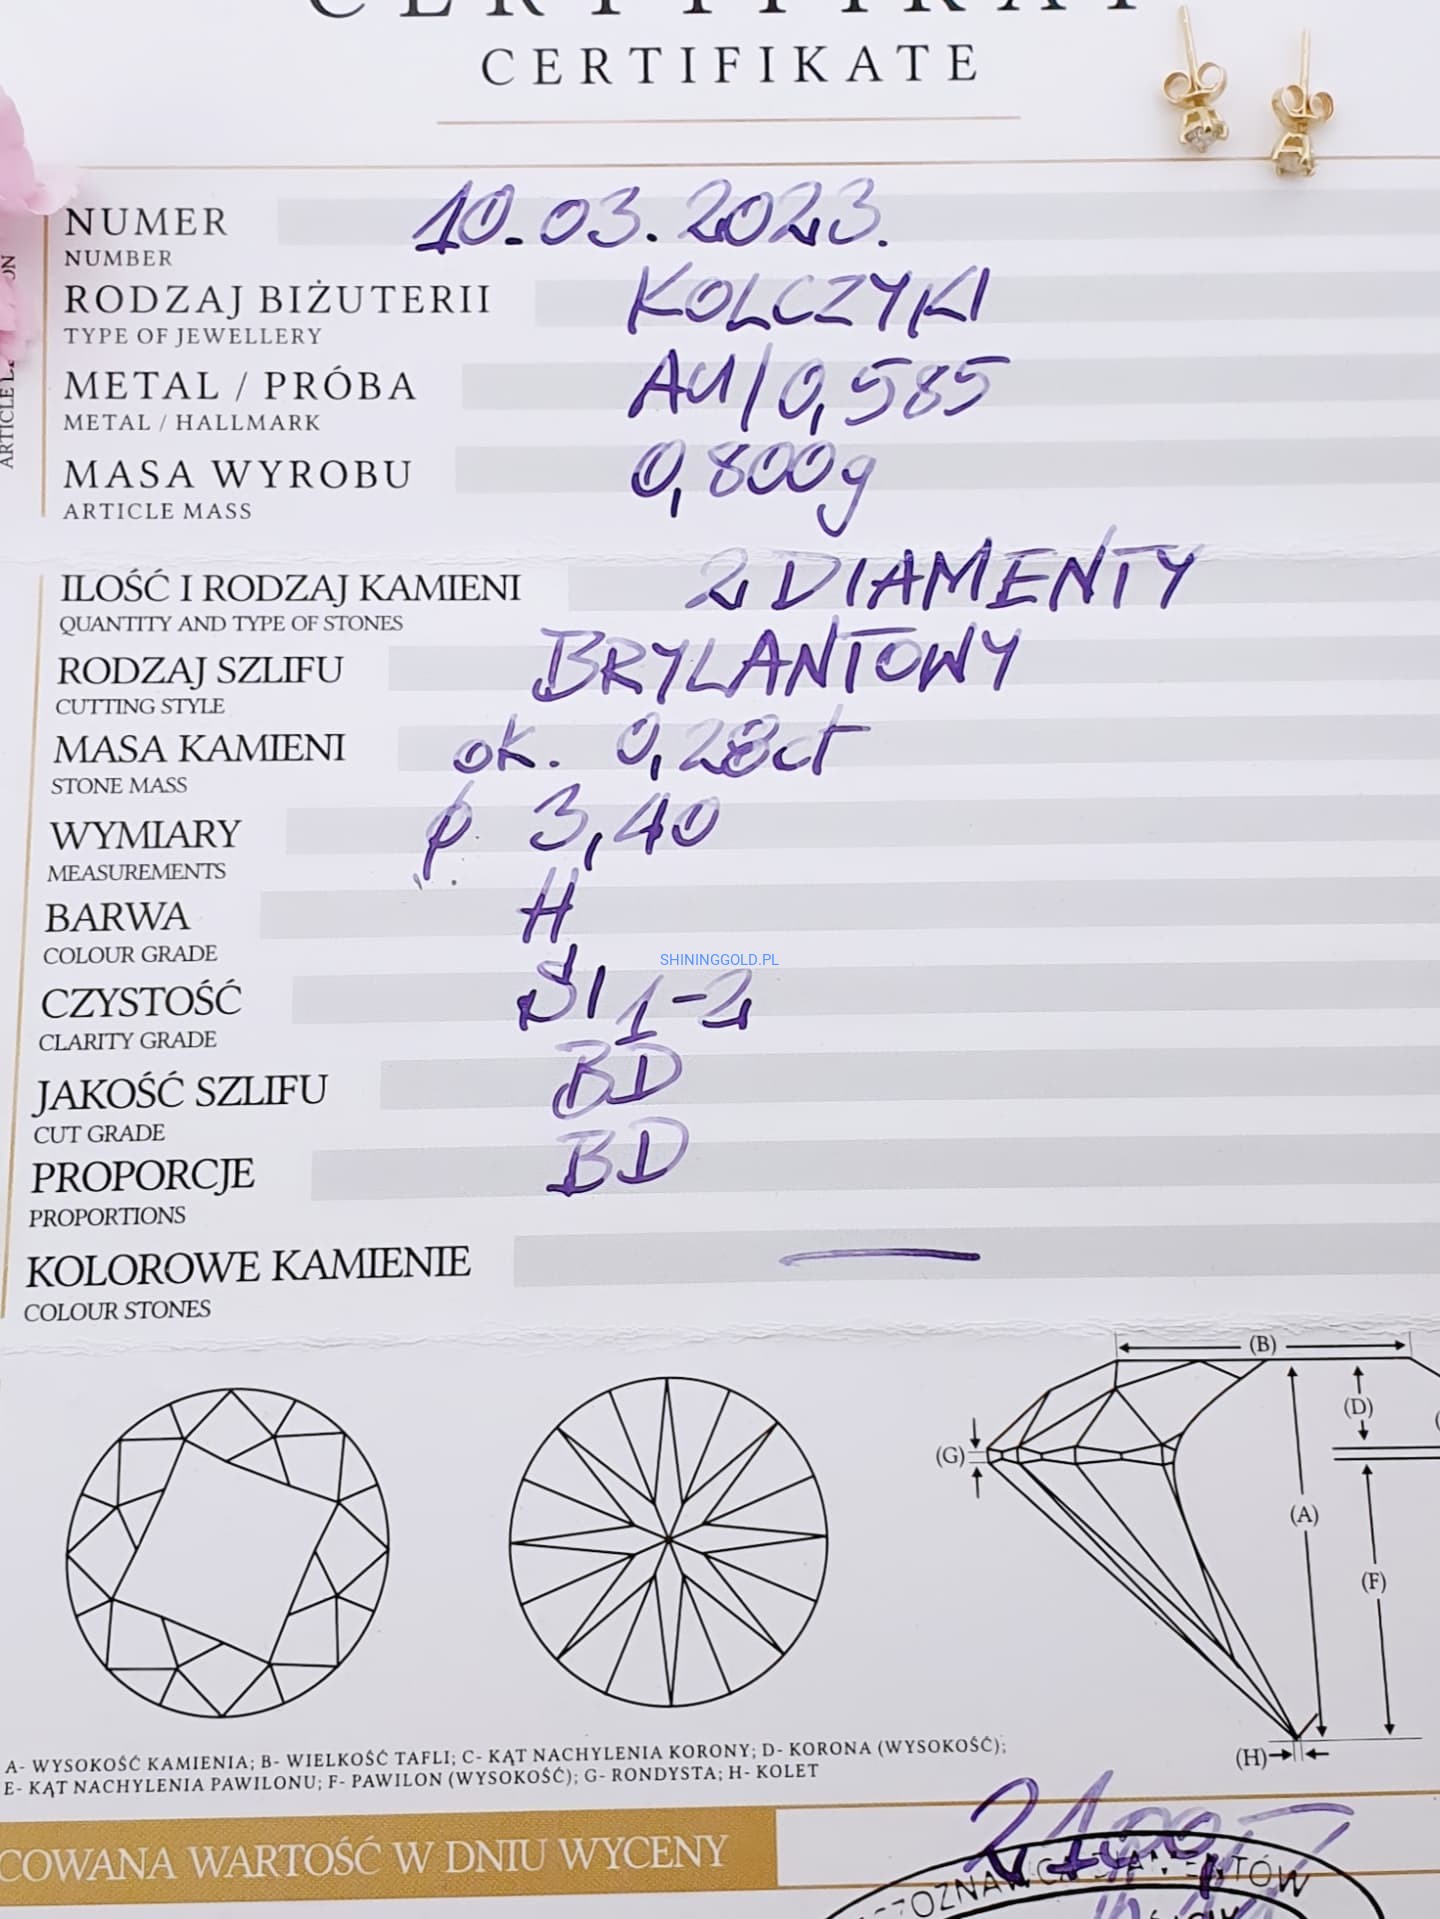 CERTYFIKAT
CERTIFIKATE
NUMER 10.03.2023.
NUMBER
RODZAJ BIŻUTERII KOLCZYKI
TYPE OF JEWELLERY
METAL / PRÓBA AU/0,585
METAL / HALLMARK
MASA WYROBU 0,800g
ARTICLE MASS
ILOŚĆ I RODZAJ KAMIENI 2 DIAMENTY
QUANTITY AND TYPE OF STONES
RODZAJ SZLIFU BRYLANTOWY
CUTTING STYLE
MASA KAMIENI ok. 0,28ct
STONE MASS
WYMIARY ø 3,40
MEASUREMENTS
BARWA H
COLOUR GRADE
SHININGGOLD.PL
CZYSTOŚĆ SI 1-2
CLARITY GRADE
JAKOŚĆ SZLIFU BD
CUT GRADE
PROPORCJE BD
PROPORTIONS
KOLOROWE KAMIENIE —
COLOUR STONES
(B)
(D)
(G)
(A)
(F)
(H)
A- WYSOKOŚĆ KAMIENIA; B- WIELKOŚĆ TAFLI; C- KĄT NACHYLENIA KORONY; D- KORONA (WYSOKOŚĆ);
E- KĄT NACHYLENIA PAWILONU; F- PAWILON (WYSOKOŚĆ); G- RONDYSTA; H- KOLET
COWANA WARTOŚĆ W DNIU WYCENY
ARTICLE